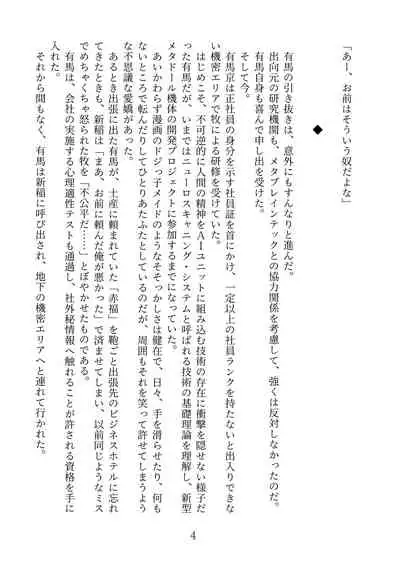 「あー、お前はそういう奴だよな」
◆
有馬の引き抜きは、意外にもすんなりと進んだ。
出向元の研究機関も、メタブレインテックとの協力関係を考慮して、強くは反対しなかったのだ。
有馬自身も喜んで申し出を受けた。
そして今。
有馬京は正社員の身分を示す社員証を首にかけ、一定以上の社員ランクを持たないと出入りできな
い機密エリアで牧による研修を受けていた。
はじめこそ、不可逆的に人間の精神をAIユニットに組み込む技術の存在に衝撃を隠せない様子だ
った有馬だが、いまではニューロスキャニング・システムと呼ばれる技術の基礎理論を理解し、新型
メタドール機体の開発プロジェクトに参加するまでになっていた。
あいかわらず漫画のドジっ子メイドのようなそそっかしさは健在で、日々、手を滑らせたり、何も
ないところで転んだりしてひとりあたふたとしているのだが、周囲もそれを笑って許せてしまうよう
な不思議な愛嬌があった。
あるとき出張に出た有馬が、土産に頼まれていた「赤福」を鞄ごと出張先のビジネスホテルに忘れ
てきたときも、新稲は「まあ、お前に頼んだ俺が悪かった」で済ませてしまい、以前同じようなミス
でめちゃくちゃ怒られた牧を「不公平だ……」とぼやかせたものである。
有馬は、会社の実施する心理適性テストも通過し、社外秘情報へ触れることが許される資格を手に
入れた。
それから間もなく、有馬は新稲に呼び出され、地下の機密エリアへと連れて行かれた。
4